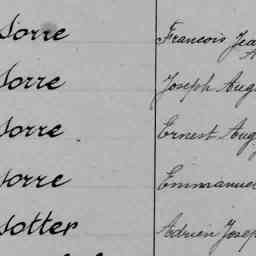 Sorre François Jea
Sorre Joseph Aug
Sorre Ernest Aug
Sorre Emmanuel
Sotter Adrien Josep